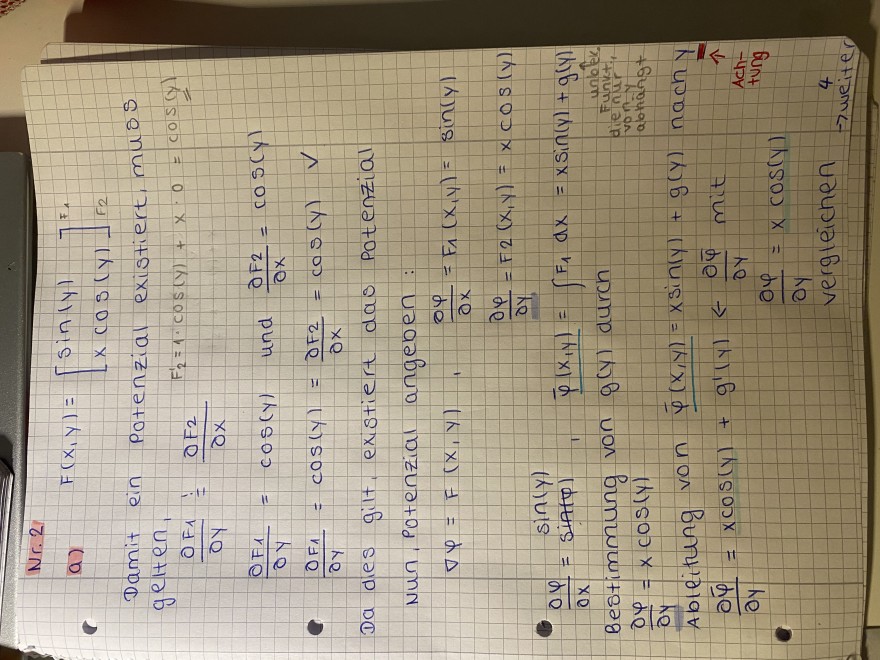 Nr. 2
a) F(x,y) = [ sin(y) ] F1
[ x cos(y) ] F2
Damit ein Potenzial existiert, muss
gelten, F'2 = 1·cos(y) + x·0 = cos(y)
∂F1/∂y != ∂F2/∂x
∂F1/∂y = cos(y) und ∂F2/∂x = cos(y)
∂F1/∂y = cos(y) = ∂F2/∂x = cos(y) ✓
Da dies gilt, existiert das Potenzial
Nun, Potenzial angeben:
∇φ = F(x,y) , ∂φ/∂x = F1(x,y) = sin(y)
∂φ/∂y = F2(x,y) = x cos(y)
∂φ/∂x = sin(φ) sin(y) , φ̄(x,y) = ∫F1 dx = x sin(y) + g(y)
unbek.
Funkt.,
die nur
von y
abhängt
Bestimmung von g(y) durch
∂φ/∂y = x cos(y)
Ableitung von φ̄(x,y) = x sin(y) + g(y) nach y
Ach-
tung
∂φ̄/∂y = x cos(y) + g'(y) ← ∂φ̄/∂y mit
∂φ/∂y = x cos(y)
vergleichen
4
→ weiter